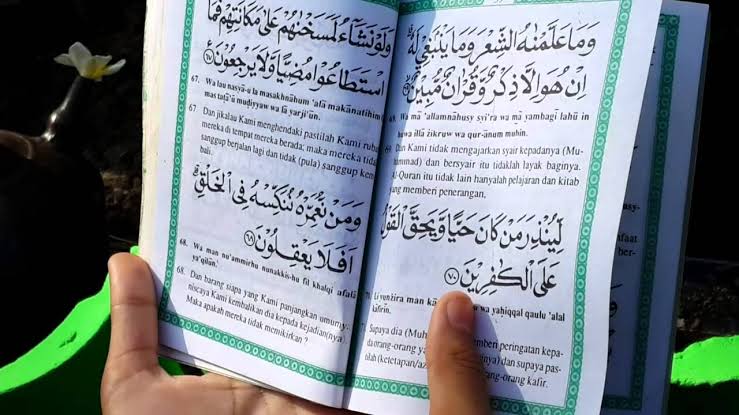 وَلَوْ نَشَآءُ لَمَسَخْنٰهُمْ عَلٰى مَكَانَتِهِمْ فَمَا
اسْتَطَاعُوْا مُضِيًّا وَّلَا يَرْجِعُوْنَ ۝٦٧
67. Wa lau nasyā-u lamasakhnāhum 'alā makānatihim
mastaṭā'ū muḍiyyaw wa lā yarji'ūn.
67 Dan jikalau Kami menghendaki pastilah Kami rubah
mereka di tempat mereka berada; maka mereka tidak
sanggup berjalan lagi dan tidak (pula) sanggup kem
bali.
وَمَنْ نُّعَمِّرْهُ نُنَكِّسْهُ فِى الْخَلْقِۗ
اَفَلَا يَعْقِلُوْنَ ۝٦٨
68. Wa man nu'ammirhu nunakkis-hu fil khalqi afalā
ya'qilūn.
68. Dan barang siapa yang Kami panjangkan umurnya
niscaya Kami kembalikan dia kepada kejadian(nya).
Maka apakah mereka tidak memikirkan ?
وَمَا عَلَّمْنٰهُ الشِّعْرَ وَمَا يَنْۢبَغِيْ لَهٗ
اِنْ هُوَ اِلَّا ذِكْرٌ وَّقُرْاٰنٌ مُّبِيْنٌ ۝٦٩
69. Wa mā 'allamnāhusy syi'ra wa mā yambagī lahū in
huwa illā żikruw wa qur-ānum mubīn.
Dan Kami tidak mengajarkan syair kepadanya (Mu-
hammad) dan bersyair itu tidaklah layak baginya.
Al-Quran itu tidak lain hanyalah pelajaran dan kitab
yang memberi penerangan.
لِّيُنْذِرَ مَنْ كَانَ حَيًّا وَّيَحِقَّ الْقَوْلُ
عَلَى الْكٰفِرِيْنَ ۝٧٠
70. Liyunżira man kā wa yaḥiqqal qaulu 'alal
kāfirīn.
Supaya dia (Muh memberi peringatan kepa-
da orang-orang ya (nya) dan supaya pas-
tilah (ketetapan/az orang-orang kafir.